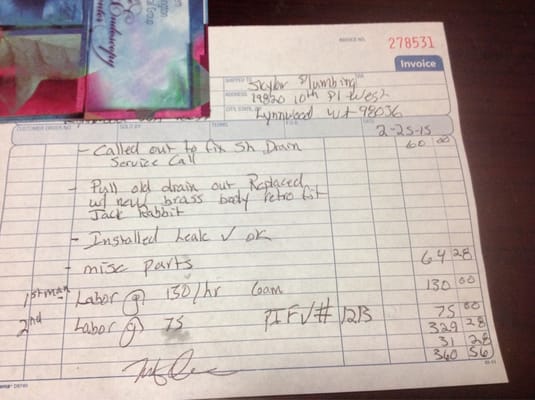 INVOICE NO. 278531
Invoice
SHIPPED TO Skylor Plumbing
ADDRESS 19820 10th Pl West
CITY, STATE, ZIP Lynnwood WA 98036
CUSTOMER ORDER NO. SOLD BY TERMS F.O.B. DATE
2-25-15
- Called out to fix Sh Drain 60 00
Service Call
- Pull old drain out Replaced
w/ new brass body retro fit
Jack Rabbit
- Installed Leak ✓ ok
- misc parts 64 28
1st man Labor @ 130/hr 130 00
2nd Labor @ 75 PIF V# 1213 75 00
329 28
31 28
360 56